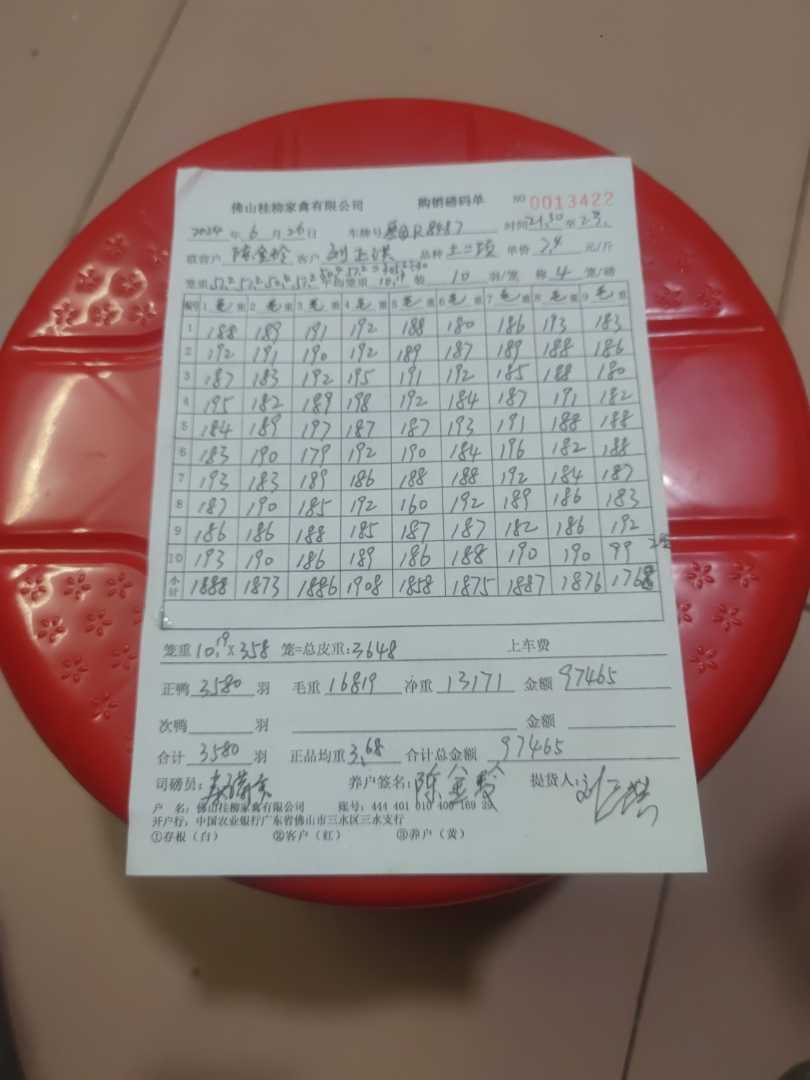 佛山桂柳家禽有限公司 购销磅码单 NO 0013422
2024年 6 月 26日 车牌号 R8487 时间 21.30 至 23.
客户 品种 单价 7.4 元/斤
笼重 10.19 装 10 羽/笼 称 4 笼/磅
编号 1 毛 重 2 毛 重 3 毛 重 4 毛 重 5 毛 重 6 毛 重 7 毛 重 8 毛 重 9 毛 重
1 188 189 191 192 188 180 186 193 183
2 192 191 190 192 189 187 189 188 186
3 187 183 192 195 191 192 185 188 180
4 195 182 189 198 192 184 187 191 182
5 184 189 197 187 187 193 191 188 188
6 183 190 179 192 190 184 196 182 188
7 193 183 189 186 188 188 192 184 187
8 187 190 185 192 160 192 189 186 183
9 186 186 188 185 187 187 182 186 192
10 193 190 186 189 186 188 190 190 99 2笼
小计 1888 1873 1886 1908 1858 1875 1887 1876 1768
笼重 10.19 X 358 笼=总皮重:3648 上车费
正鸭 3580 羽 毛重 16819 净重 13171 金额 97465
次鸭 羽 金额
合计 3580 羽 正品均重 3.68 合计总金额 97465
司磅员: 养户签名: 陈金玲 提货人:
户 名: 佛山桂柳家禽有限公司 账号: 444 401 010 400 169 29
开户行: 中国农业银行广东省佛山市三水区三水支行
①存根(白) ②客户(红) ③养户(黄)